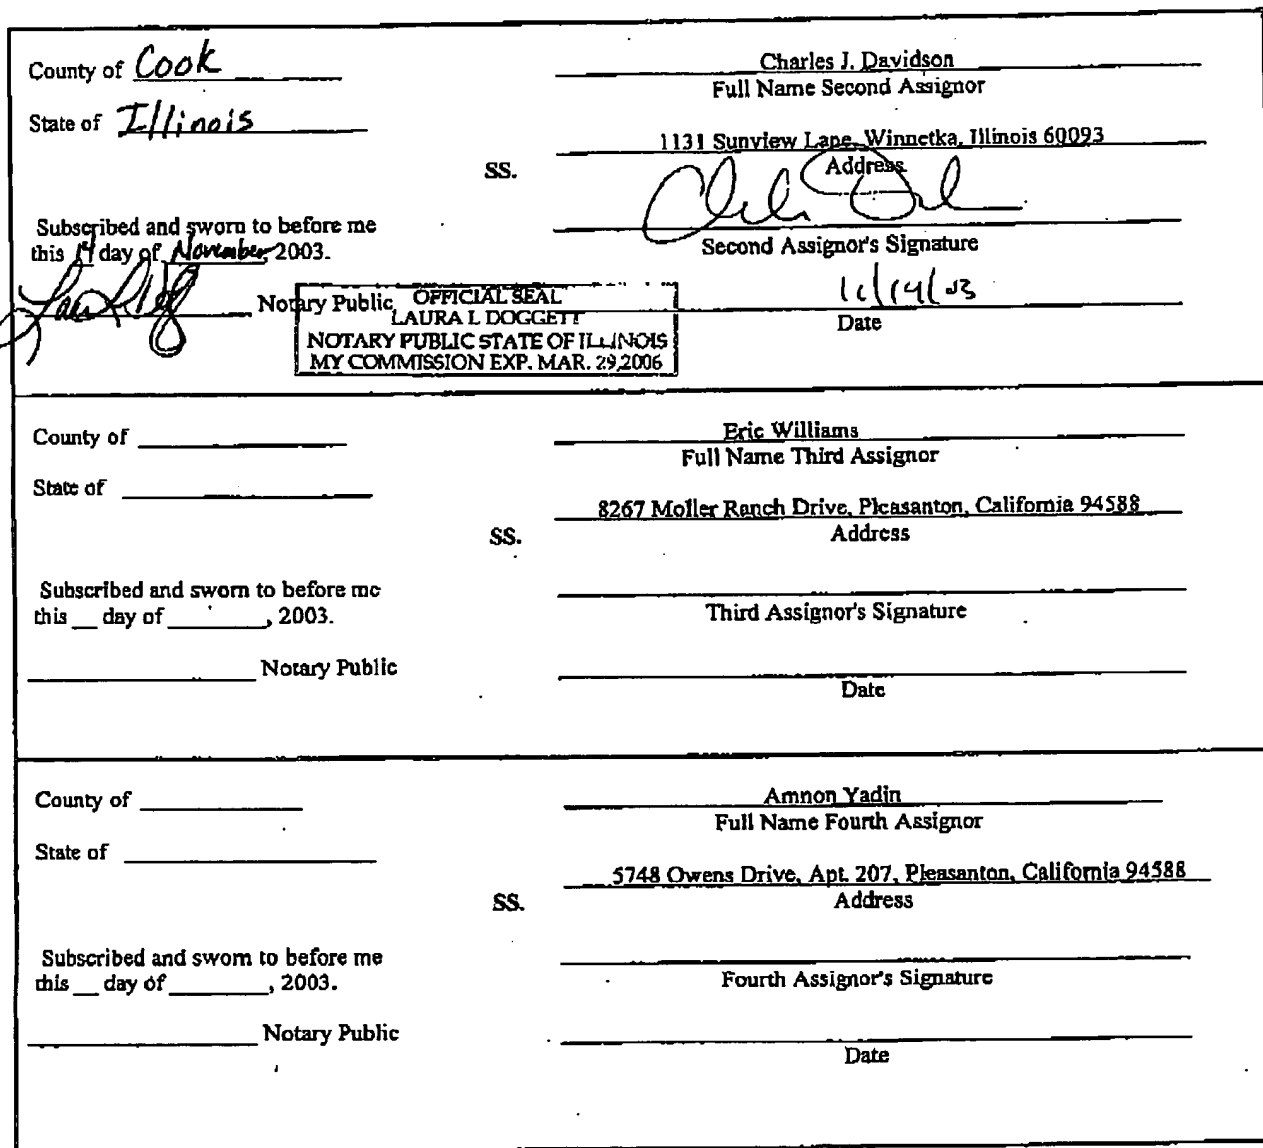 County of Cook
State of Illinois
SS.
Subscribed and sworn to before me
this 14 day of November, 2003.
Notary Public
OFFICIAL SEAL
LAURA L DOGGETT
NOTARY PUBLIC STATE OF ILLINOIS
MY COMMISSION EXP. MAR. 29,2006
Charles J. Davidson
Full Name Second Assignor
1131 Sunview Lane, Winnetka, Illinois 60093
Address
Second Assignor's Signature
11/14/03
Date
County of
State of
SS.
Subscribed and sworn to before me
this __ day of ________, 2003.
Notary Public
Eric Williams
Full Name Third Assignor
8267 Moller Ranch Drive, Pleasanton, California 94588
Address
Third Assignor's Signature
Date
County of
State of
SS.
Subscribed and sworn to before me
this __ day of ________, 2003.
Notary Public
Amnon Yadin
Full Name Fourth Assignor
5748 Owens Drive, Apt. 207, Pleasanton, California 94588
Address
Fourth Assignor's Signature
Date